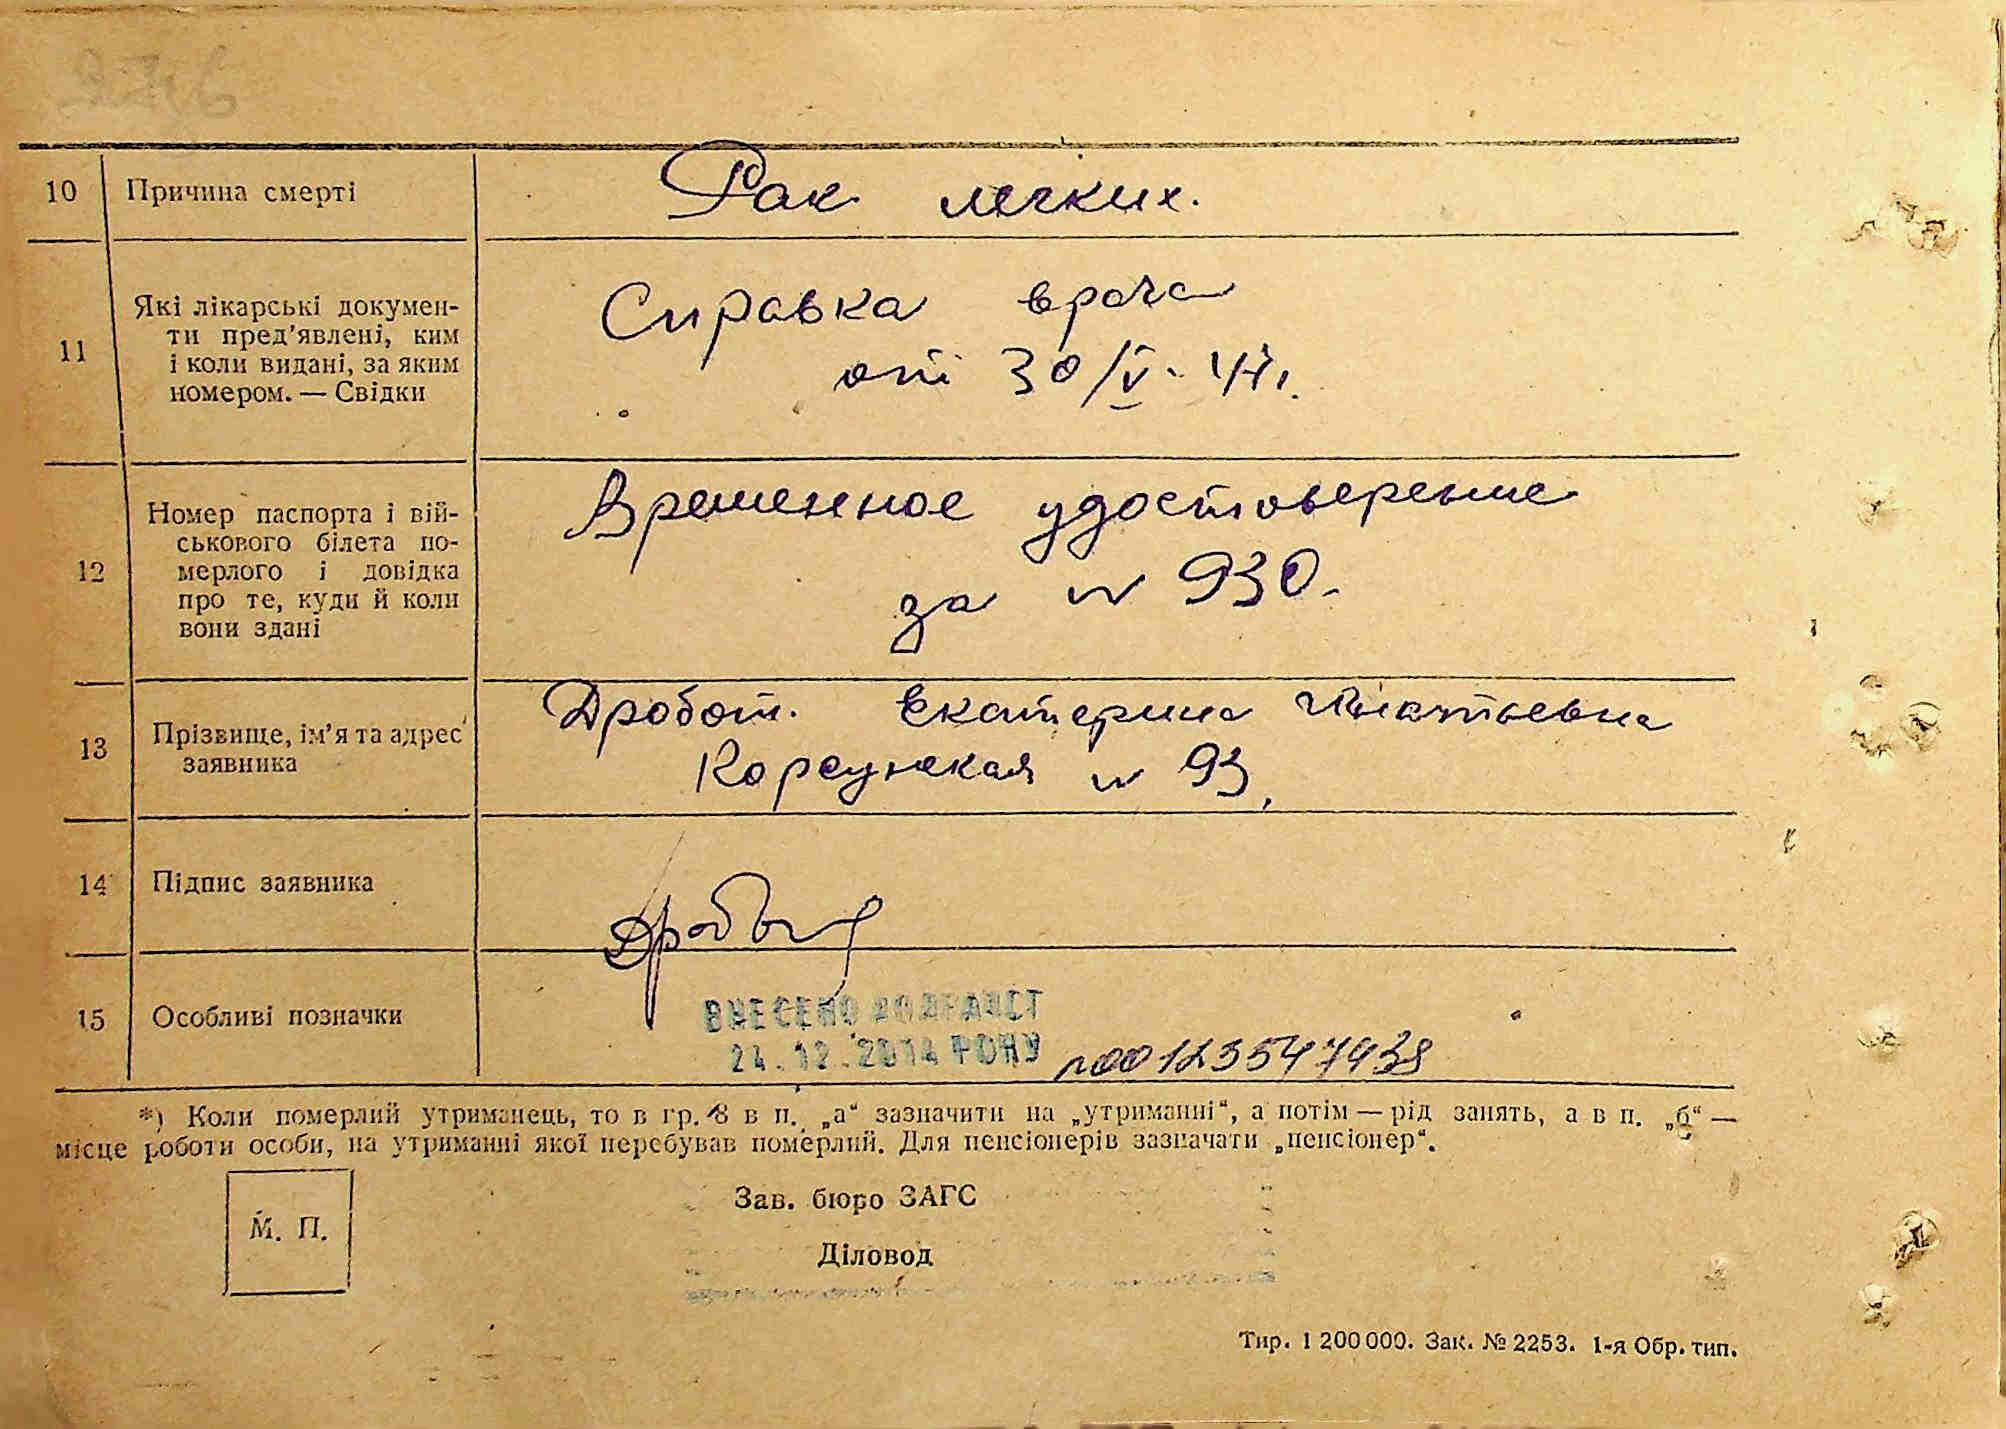 10 Причина смерті Рак легких.
11 Які лікарські докумен-
ти пред'явлені, ким
і коли видані, за яким
номером. — Свідки
Справка врача
от 30/V- 44г.
12 Номер паспорта і вій-
ськового білета по-
мерлого і довідка
про те, куди й коли
вони здані
Временное удостоверение
за № 930.
13 Прізвище, ім'я та адрес
заявника
Дробот. Екатерина Игнатьевна
Корсунская № 93,
14 Підпис заявника
Дробот
15 Особливі позначки
ВНЕСЕНО ДО ДРАЦСГ
24.12.2014 РОКУ №00123547438
*) Коли померлий утриманець, то в гр. 8 в п. „а“ зазначити на „утриманні“, а потім — рід занять, а в п. „б“ —
місце роботи особи, на утриманні якої перебував померлий. Для пенсіонерів зазначати „пенсіонер“.
М. П.
Зав. бюро ЗАГС
Діловод
Тир. 1 200 000. Зак. № 2253. 1-я Обр. тип.